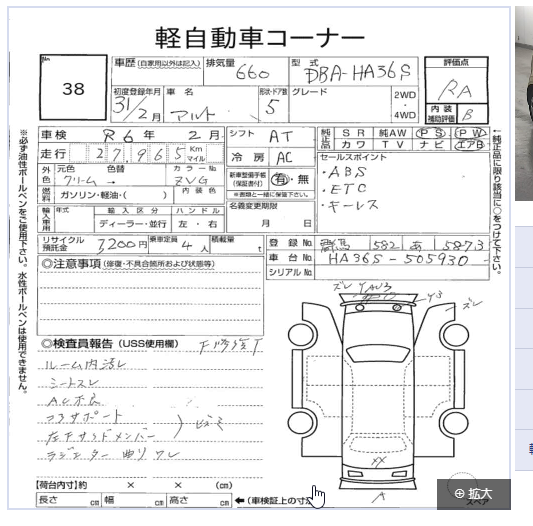 軽自動車コーナー
No. 38
車歴(自家用以外は記入) 排気量 660 型式 DBA-HA36S
初度登録年月 31/2月 車名 アルト 形状・ドア数 5 グレード 2WD・4WD
評価点 RA
内装補助評価 B
車検 R6年 2月 シフト AT
走行 27,965 Km マイル 冷房 AC
純正品 SR 純AW PS PW カワ TV ナビ エアB
外色 元色 クリーム → 色替 カラーNo. ZVG
燃料 ガソリン・軽油・( ) 内装色
新車整備手帳(保証書付) 有・無
※書類と一緒に保管下さい。
セールスポイント
・ABS
・ETC
・キーレス
輸入車用 年式 輸入区分 ディーラー・並行 ハンドル 左・右
名義変更期限 月 日
リサイクル預託金 7200円 乗車定員 4人 積載量 t
登録No. 群馬 582 あ 5873
車台No. HA36S-505930
シリアルNo.
◎注意事項(修復・不具合箇所および状態等)
◎検査員報告(USS使用欄)
ルーム内汚レ
シートスレ
AC不良
コアサポート
左Fサイドメンバー
ラジエター曲リ ワレ
ズレ
ズレ
XX
A
【荷台内寸】約 × × (cm)
長さ cm 幅 cm 高さ cm
←(車検証上の寸法
※必ず油性ボールペンをご使用下さい。水性ボールペンは使用できません。
←純正品に限り該当に○をつけて下さい。
拡大
スペア